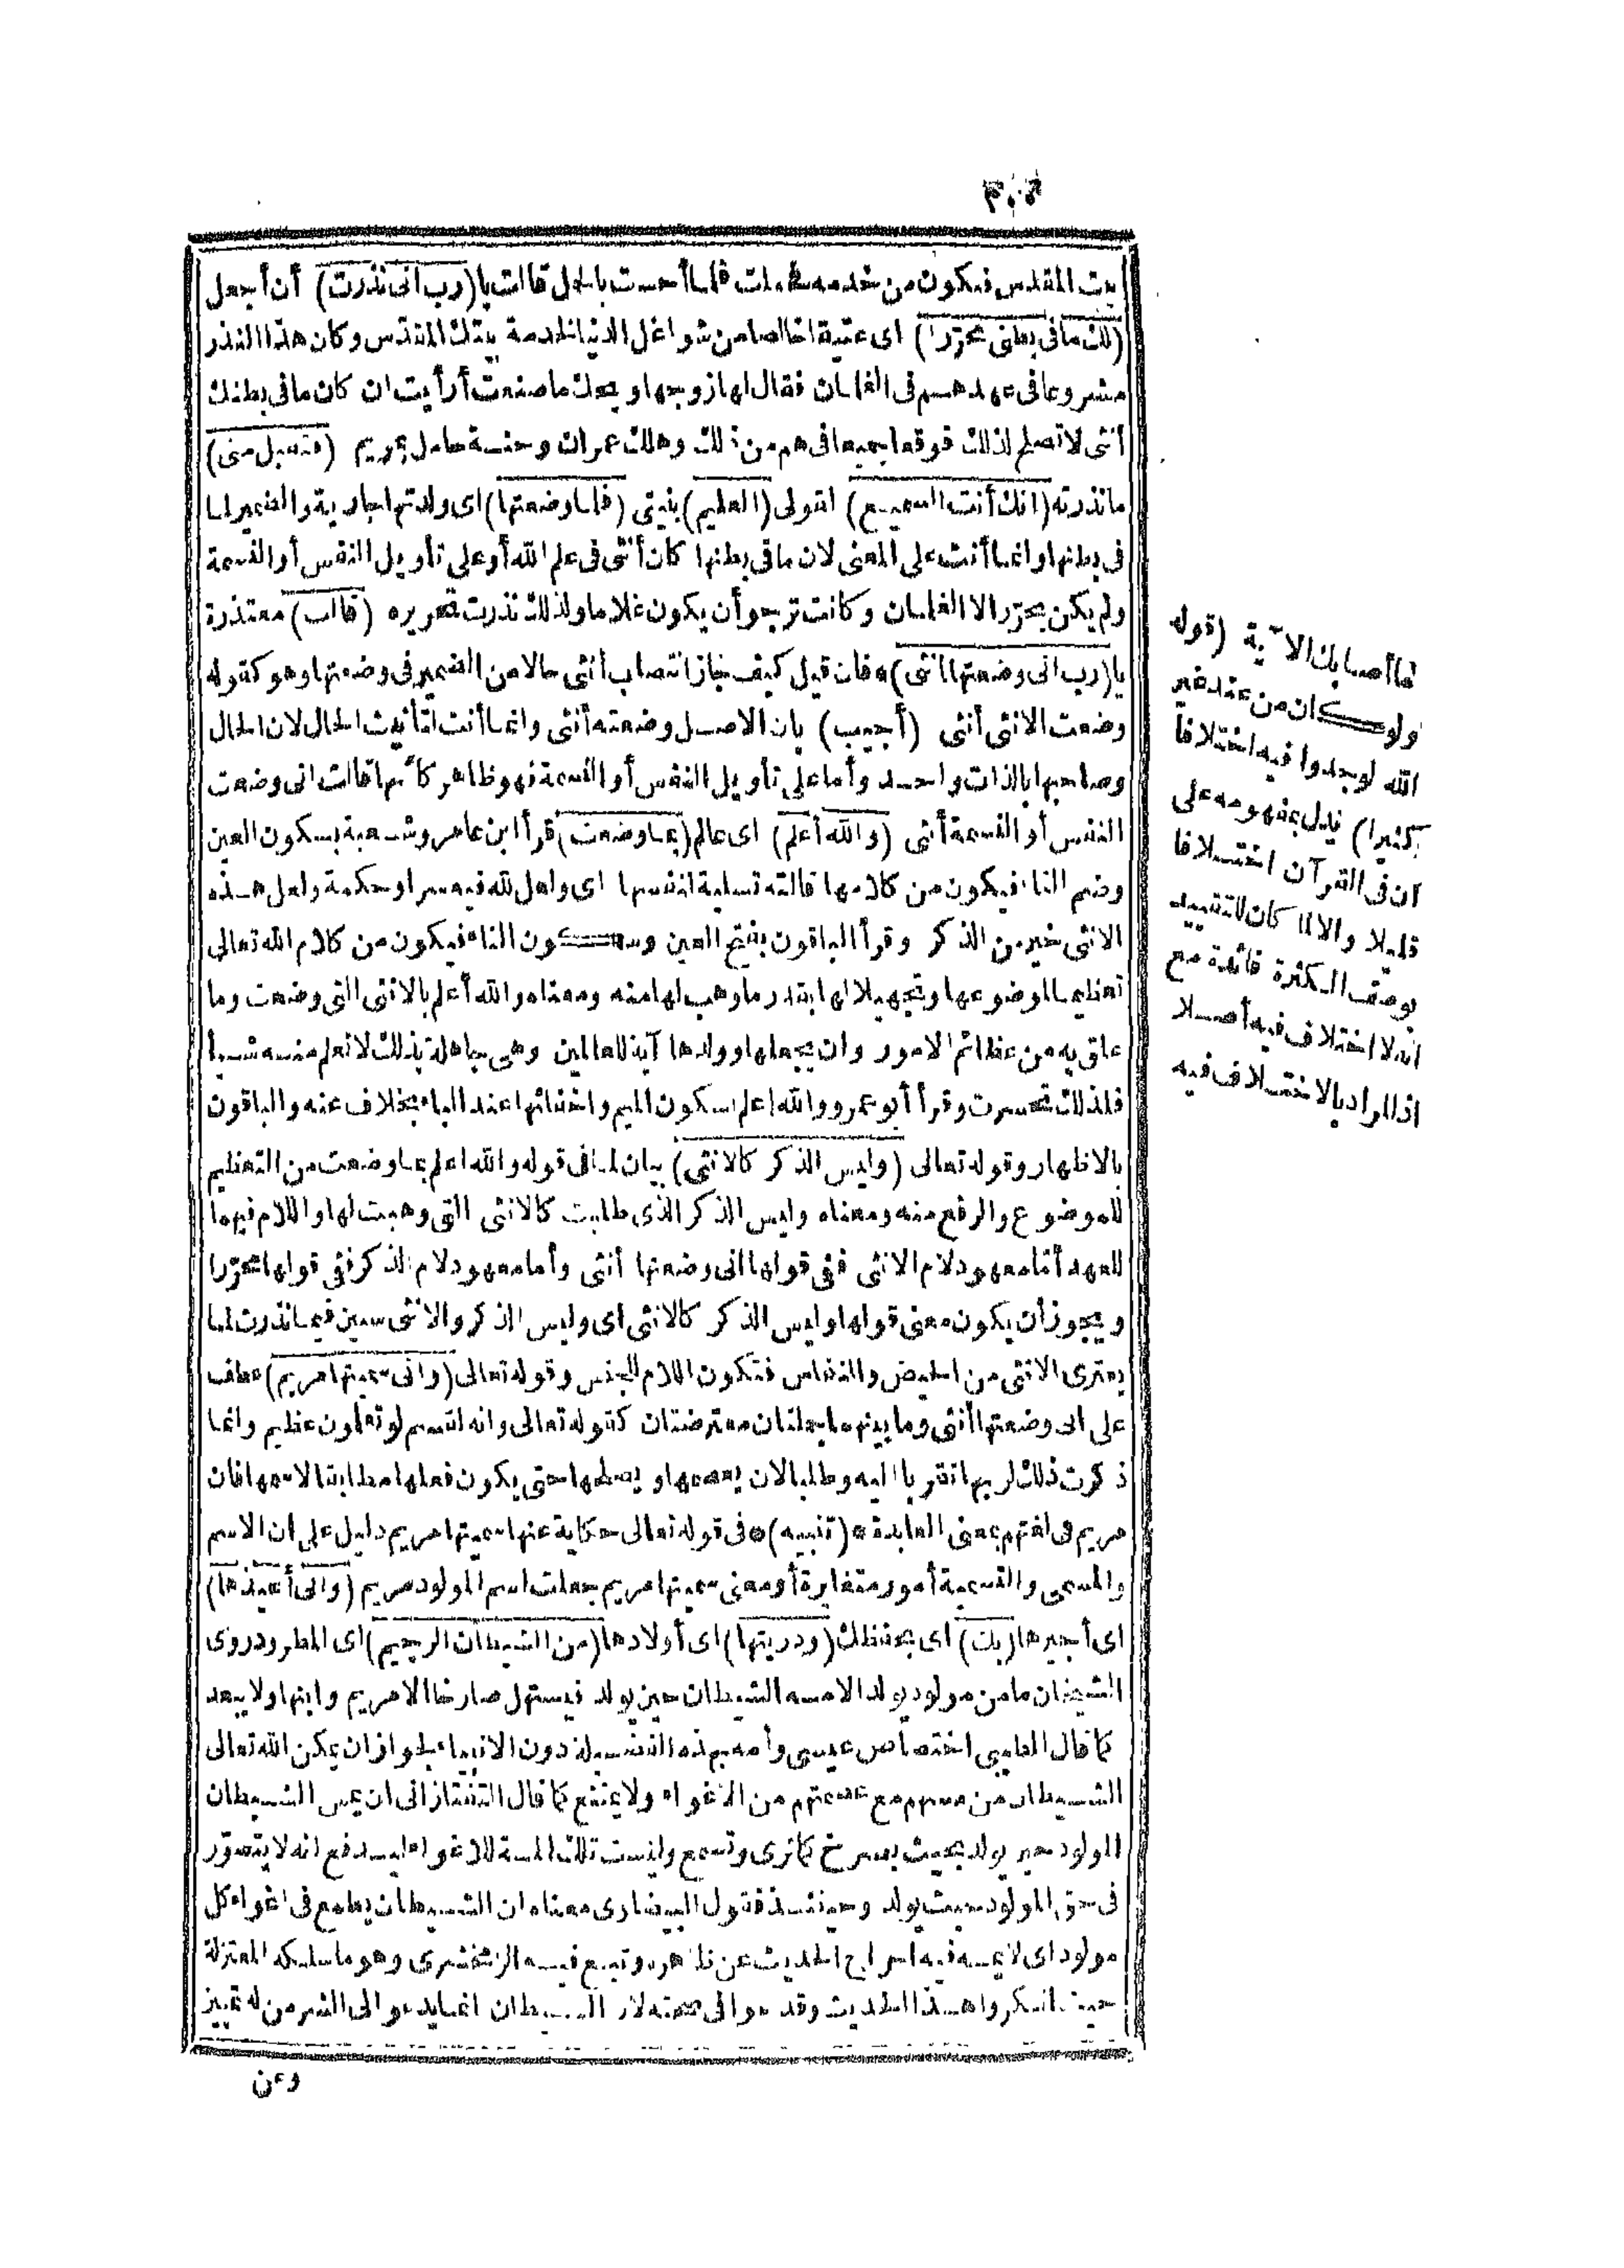 بيت المقدس فيكون من خدمه فحملت فلما أحست بالحمل قالت يا (رب انى نذرت) أن أجعل
(لك ما فى بطنى محرّرا) اى عتيقا خالصا من شواغل الدنيا لخدمة بيتك المقدّس وكان هذا النذر
مشروعا فى عهدهم فى الغلمان فقال لها زوجها ويحك ما صنعت أرأيت ان كان ما فى بطنك
أنثى لا تصلح لذلك فوقعا جميعا فى هم من ذلك وهلك عمران وحنة حامل بمريم (فتقبل منى)
ما نذرته (انك أنت السميع) لقولى (العليم) بنيتى (فلما وضعتها) اى ولدتها جارية والضمير لما
فى بطنها وانما أنث على المعنى لان ما فى بطنها كان أنثى فى علم الله أو على تأويل النفس أو النسمة
ولم يكن يحرّر الا الغلمان وكانت ترجو أن يكون غلاما ولذلك نذرت تحريره (قالت) معتذرة
يا (رب انى وضعتها أنثى) ه فان قيل كيف جاز انتصاب أنثى حالا من الضمير فى وضعتها وهو كقوله
وضعت الانثى أنثى (أجيب) بان الاصل وضعته أنثى وانما أنث لتأنيث الحال لان الحال
وصاحبها بالذات واحد وأما على تأويل النفس أو النسمة فهو ظاهر كأنها قالت انى وضعت
النفس أو النسمة أنثى (والله أعلم) اى عالم (بما وضعت) قرأ ابن عامر وشعبة بسكون العين
وضم التاء فيكون من كلامها قالته تسلية لنفسها اى ولعل لله فيه سرا وحكمة ولعل هذه
الانثى خير من الذكر وقرأ الباقون بفتح العين وسكون التاء فيكون من كلام الله تعالى
تعظيما لموضوعها وتجهيلا لها بقدر ما وهب لها منه ومعناه والله أعلم بالانثى التى وضعت وما
علق به من عظائم الامور وان يجعلها وولدها آية للعالمين وهى جاهلة بذلك لا تعلم منه شيأ
فلذلك تحسرت وقرأ أبو عمرو والله اعلم بسكون الميم واخفائها عند الباء بخلاف عنه والباقون
بالاظهار وقوله تعالى (وليس الذكر كالانثى) بيان لما فى قوله والله اعلم بما وضعت من التعظيم
للموضوع والرفع منه ومعناه وليس الذكر الذى طلبت كالانثى التى وهبت لها واللام فيهما
للعهد أمّا معهود لام الانثى ففى قولها انى وضعتها أنثى وأما معهود لام الذكر ففى قولها محرّرا
ويجوز أن يكون معنى قولها وليس الذكر كالانثى اى وليس الذكر والانثى سيين فيما نذرت لما
يعترى الانثى من الحيض والنفاس فتكون اللام للجنس وقوله تعالى (وانى سميتها مريم) عطف
على انى وضعتها أنثى وما بينهما جملتان معترضتان كقوله تعالى وانه لقسم لو تعلمون عظيم وانما
ذكرت ذلك لربها تقربا اليه وطلبا لان يعصمها ويصلحها حتى يكون فعلها مطابقا لاسمها فان
مريم فى لغتهم بمعنى العابدة ه (تنبيه) ه فى قوله تعالى حكاية عنها سميتها مريم دليل على ان الاسم
والمسمى والتسمية أمور متغايرة أو معنى سميتها مريم جعلت اسم المولود مريم (وانى أعيذها)
اى أجيرها (بك) اى بحفظك (وذريتها) اى أولادها (من الشيطان الرجيم) اى المطرود روى
الشيخان ما من مولود يولد الا مسه الشيطان حين يولد فيستهل صارخا الا مريم وابنها ولا يبعد
كما قال الطيبى اختصاص عيسى وأمه بهذه الفضيلة دون الانبياء لجواز ان يمكن الله تعالى
الشيطان من مسهم مع عصمتهم من الاغواء ولا يمتنع كما قال التفتازانى ان يمس الشيطان
المولود حين يولد بحيث يصرخ كما ترى وتسمع وليست تلك المسة للاغواء ليدفع انه لا يتصوّر
فى حق المولود حيث يولد وحينئذ فقول البيضاوى معناه ان الشيطان يطمع فى اغواء كل
مولود اى لا يمسه فيه اخراج الحديث عن ظاهره وتبع فيه الزمخشرى وهو ما سلكه المعتزلة
حيث انكروا هذا الحديث وقدحوا فى صحته لان الشيطان انما يدعو الى الشر من له تمييز
وعن
فما أصابك الآية (قوله
ولو كان من عند غير
الله لوجدوا فيه اختلافا
كثيرا) يدل بمفهومه على
ان فى القرآن اختلافا
قليلا والا لما كان للتقييد
بوصف الكثرة فائدة مع
أنه لا اختلاف فيه أصلا
اذ المراد بالاختلاف فيه